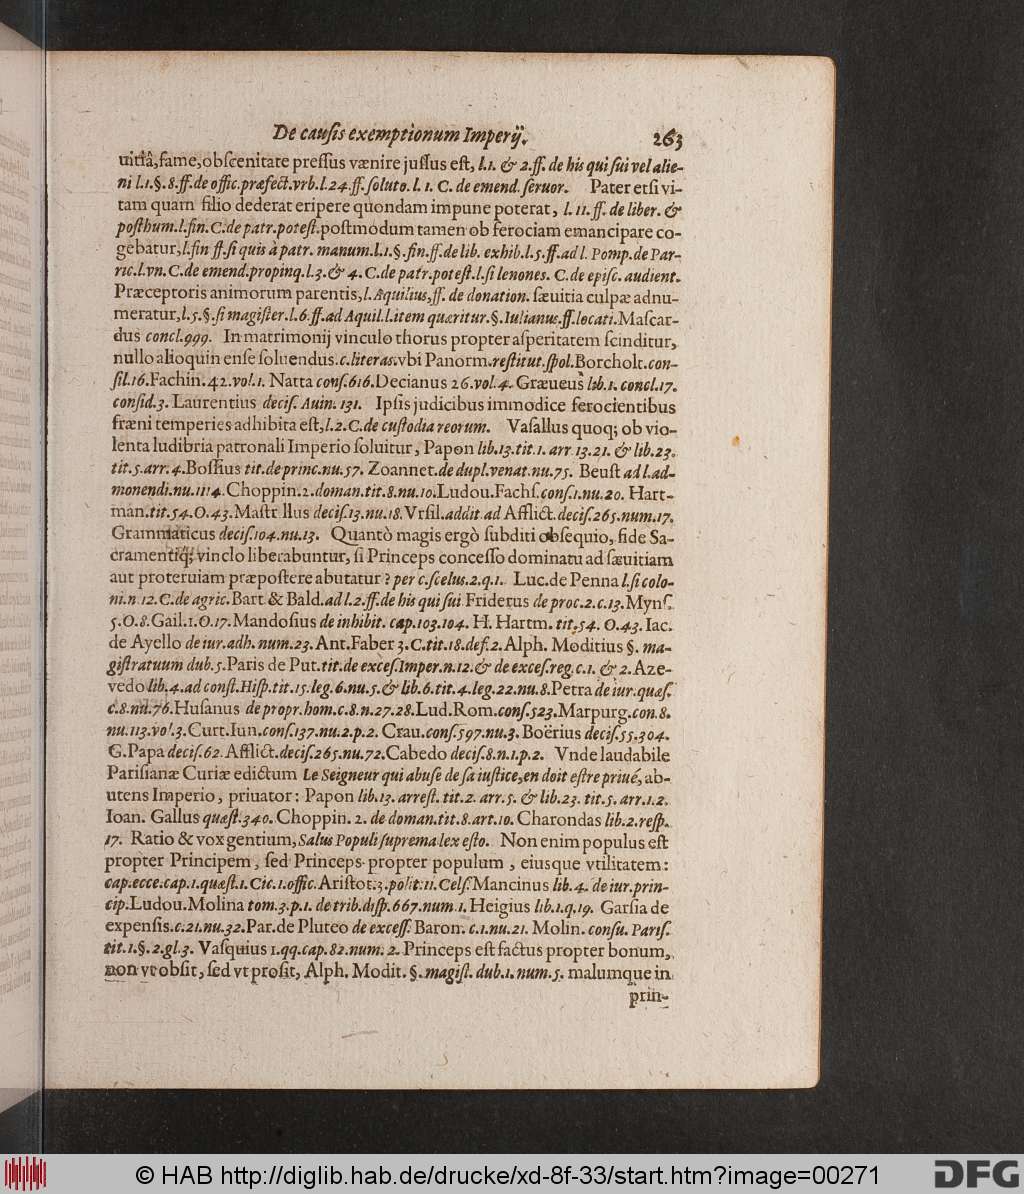 De causis exemptionum Imperij. 263
uitiâ, fame, obscenitate pressus vænire jussus est, l.1. & 2. ff. de his qui sui vel alie-
ni l.1.§.8. ff. de offic. præfect. vrb. l.24. ff. soluto. l. 1. C. de emend. seruor. Pater etsi vi-
tam quam filio dederat eripere quondam impune poterat, l. 11. ff. de liber. &
posthum. l. fin. C. de patr. potest. postmodum tamen ob ferociam emancipare co-
gebatur, l. fin ff. si quis à patr. manum. l.1.§. fin. ff. de lib. exhib. l.5. ff. ad l. Pomp. de Par-
ric. l. vn. C. de emend. propinq. l.3. & 4. C. de patr. potest. l. si lenones. C. de episc. audient.
Præceptoris animorum parentis, l. Aquilius, ff. de donation. sæuitia culpæ adnu-
meratur, l.5.§. si magister. l.6. ff. ad Aquil. l. item quæritur. §. Iulianus. ff. locati. Mascar-
dus concl. 999. In matrimonij vinculo thorus propter asperitatem scinditur,
nullo alioquin ense soluendus. c. literas. vbi Panorm. restitut. spol. Borcholt. con-
sil. 16. Fachin. 42. vol. 1. Natta cons. 616. Decianus 26. vol. 4. Græueus lib. 1. concl. 17.
consid. 3. Laurentius decis. Auin. 131. Ipsis judicibus immodice ferocientibus
fræni temperies adhibita est, l. 2. C. de custodia reorum. Vasallus quoq; ob vio-
lenta ludibria patronali Imperio soluitur, Papon lib. 13. tit. 1. arr. 13. 21. & lib. 23.
tit. 5. arr. 4. Bossius tit. de princ. nu. 57. Zoannet. de dupl. venat. nu. 75. Beust ad l. ad-
monendi. nu. 1114. Choppin. 2. doman. tit. 8. nu. 10. Ludou. Fachs. cons. 1. nu. 20. Hart-
man. tit. 54. O. 43. Mastr llus decis. 13. nu. 18. Vrsil. addit. ad Afflict. decis. 265. num. 17.
Grammaticus decis. 104. nu. 13. Quantò magis ergò subditi obsequio, fide Sa-
cramentiq; vinclo liberabuntur, si Princeps concesso dominatu ad sæuitiam
aut proteruiam præpostere abutatur ? per c. scelus. 2. q. 1. Luc. de Penna l. si colo-
ni. n. 12. C. de agric. Bart & Bald. ad l. 2. ff. de his qui sui Friderus de proc. 2. c. 13. Myns.
5. O. 8. Gail. 1. O. 17. Mandosius de inhibit. cap. 103. 104. H. Hartm. tit. 54. O. 43. Iac.
de Ayello de iur. adh. num. 23. Ant. Faber 3. C. tit. 18. def. 2. Alph. Moditius §. ma-
gistratuum dub. 5. Paris de Put. tit. de exces. Imper. n. 12. & de exces. reg. c. 1. & 2. Aze-
vedo lib. 4. ad const. Hisp. tit. 15. leg. 6. nu. 5. & lib. 6. tit. 4. leg. 22. nu. 8. Petra de iur. quæs.
c. 8. nu. 76. Husanus de propr. hom. c. 8. n. 27. 28. Lud. Rom. cons. 523. Marpurg. con. 8.
nu. 113. vol. 3. Curt. Iun. cons. 137. nu. 2. p. 2. Crau. cons. 597. nu. 3. Boërius decis. 55. 304.
G. Papa decis. 62. Afflict. decis. 265. nu. 72. Cabedo decis. 8. n. 1. p. 2. Vnde laudabile
Parisianæ Curiæ edictum Le Seigneur qui abuse de sa iustice, en doit estre priué, ab-
utens Imperio, priuator: Papon lib. 13. arrest. tit. 2. arr. 5. & lib. 23. tit. 5. arr. 1. 2.
Ioan. Gallus quæst. 340. Choppin. 2. de doman. tit. 8. art. 10. Charondas lib. 2. resp.
17. Ratio & vox gentium, Salus Populi suprema lex esto. Non enim populus est
propter Principem, sed Princeps propter populum, eiusque vtilitatem:
cap. ecce. cap. 1. quæst. 1. Cic. 1. offic. Aristot. 3. polit. 11. Cels. Mancinus lib. 4. de iur. prin-
cip. Ludou. Molina tom. 3. p. 1. de trib. disp. 667. num. 1. Heigius lib. 1. q. 19. Garsia de
expensis. c. 21. nu. 32. Par. de Pluteo de excess. Baron. c. 1. nu. 21. Molin. consu. Paris.
tit. 1. §. 2. gl. 3. Vasquius 1. qq. cap. 82. num. 2. Princeps est factus propter bonum,
non vt obsit, sed vt prosit, Alph. Modit. §. magist. dub. 1. num. 5. malumque in
prin-
© HAB http://diglib.hab.de/drucke/xd-8f-33/start.htm?image=00271
DFG